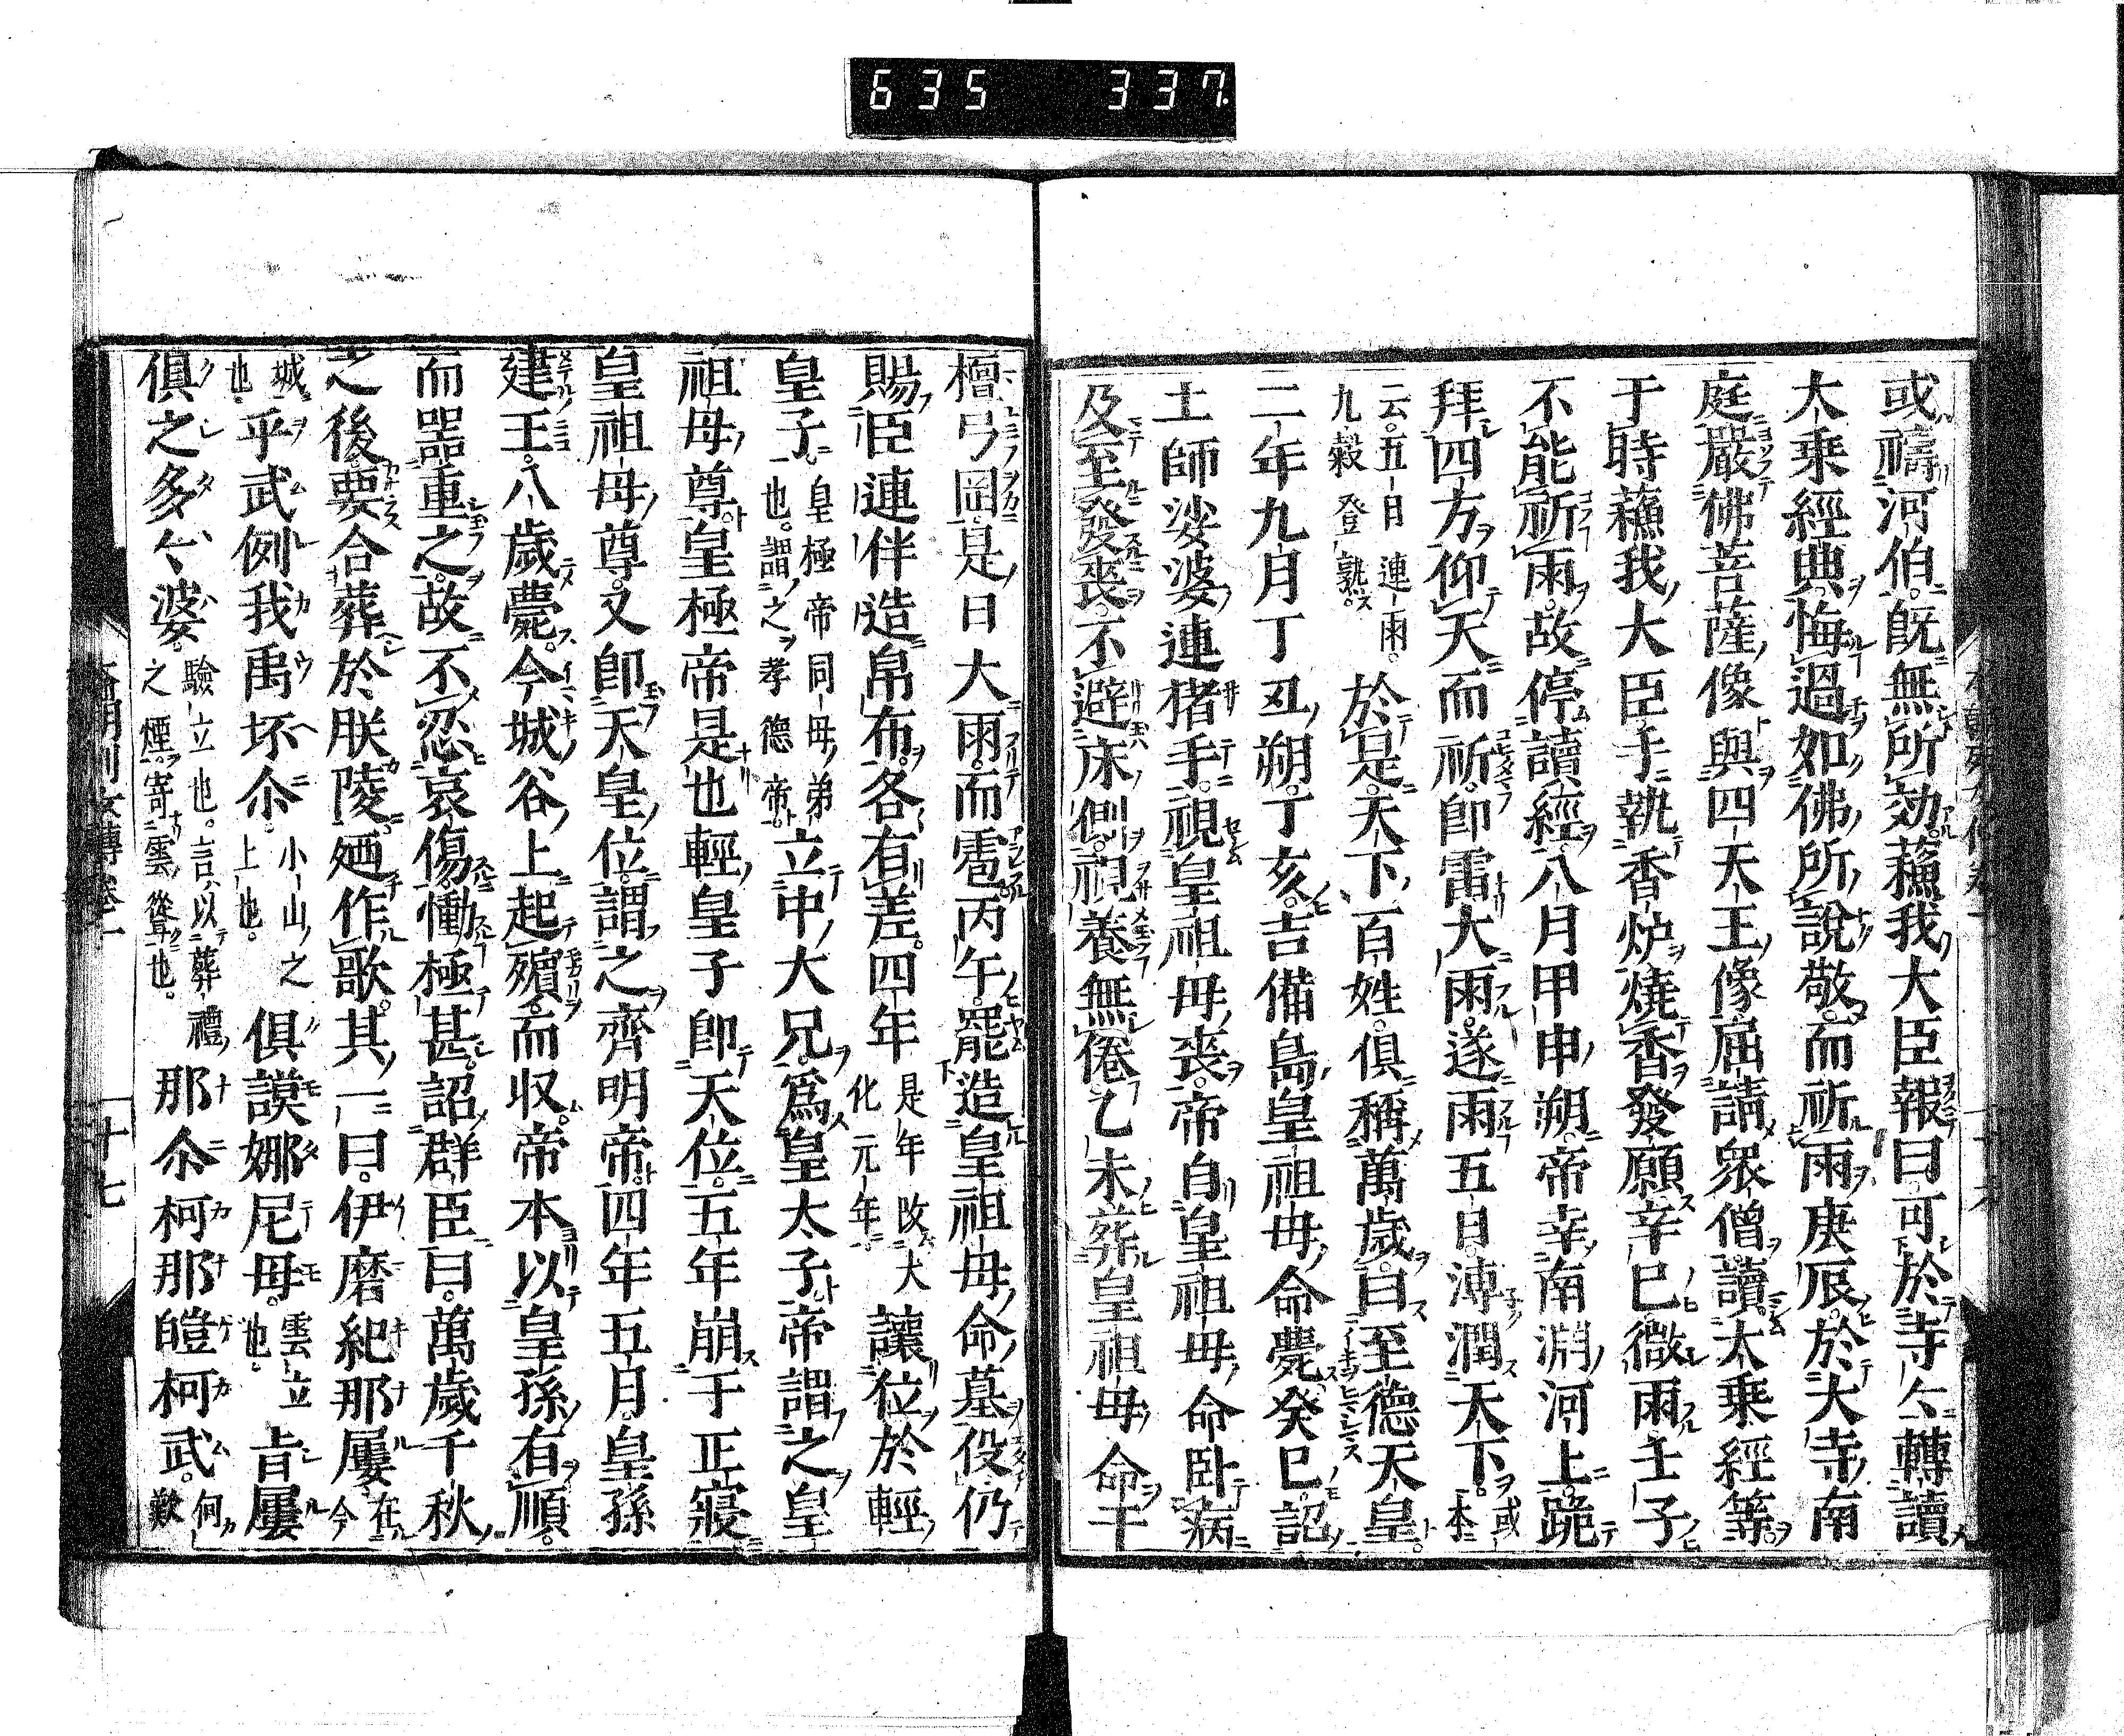 635 337
或禱河伯。既無所効。蘓我大臣報曰可於寺々轉讀
大乗經典。悔過如佛所說敬而祈雨。庚辰於大寺南
庭嚴佛菩薩像與四天王像屈請衆僧讀太乗經等。
于時蘓我大臣手執香炉燒香發願。辛巳微雨。壬子
不能祈雨。故停讀經。八月甲申朔。帝幸南淵河上。跪
拜四方仰天而祈。即雷大雨。遂雨五日。溥潤天下。或本
云。五日連雨。九穀登熟。於是天下百姓。俱稱萬歲。曰至德天皇。
二年九月丁丑朔。丁亥。吉備島皇祖母命薨。癸巳詔
土師娑婆連猪手。視皇祖母喪。帝自皇祖母命卧病
及至發喪。不避床側。視養無倦。乙未葬皇祖母命于
檀弓岡。是日大雨而雹。丙午。罷造皇祖母命墓役。仍
賜臣連伴造帛布。各有差。四年是年改大化元年讓位於輕
皇子。皇極帝同母弟也。謂之孝德帝。立中大兄。爲皇太子。帝謂之皇
祖母尊。皇極帝是也輕皇子即天位。五年崩于正寢
皇祖母尊。又即天皇位。謂之齊明帝。四年五月。皇孫
建王。八歲薨。今城谷上起殯。而収。帝本以皇孫有順。
而噐重之。故不忍哀傷慟極甚。詔群臣曰。萬歲千秋
之後。要合葬於朕陵。廼作歌。其一曰。伊磨紀那屢在今
城也。乎武例我禹坏尒。小山之上也。俱謨娜尼母。雲立也。旨屢
俱之多々婆。驗立也。言以葬禮之煙寄雲聳也。那尒柯那皚柯武。何歎
十七